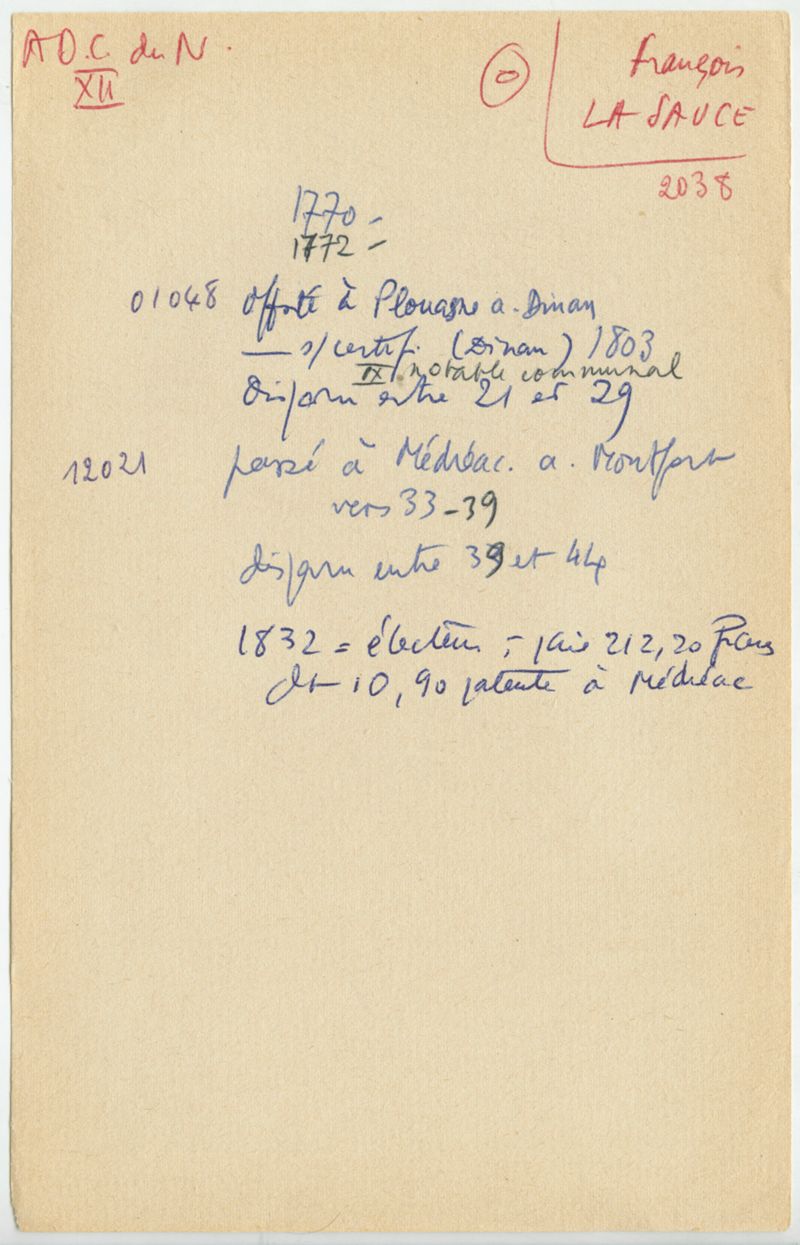 A D.C. du N.
XII
O
François
LA SAUCE
2038
1770 -
1772 -
01048 Off. sté à Plouasne a. Dinan
— s/certif. (Dinan) 1803
IX notable communal
disparu entre 21 et 29
12021 passé à Médréac. a. Montfort
vers 33-39
disparu entre 39 et 44
1832 = électeur ; paie 212,20 Francs
dt 10,90 patente à Médréac